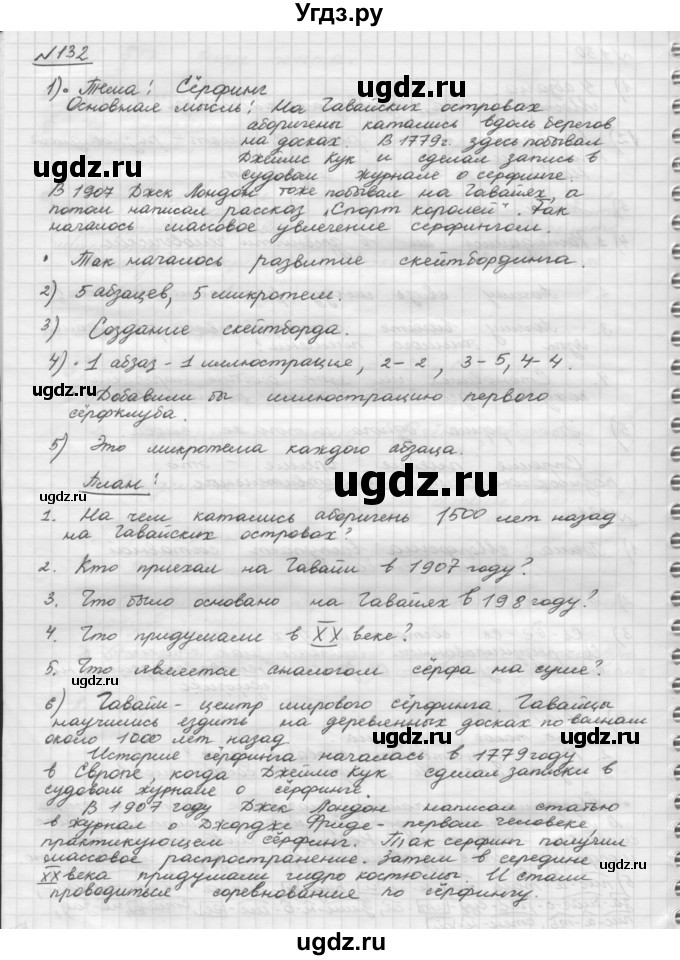 Угдз.ру
№132
1) • Тема: Сёрфинг
Основная мысль: На Гавайских островах
аборигены катались вдоль берегов
на досках. В 1779г. здесь побывал
Джеймс Кук и сделал запись в
судовом журнале о серфинге.
В 1907 Джек Лондон тоже побывал на Гавайях, а
потом написал рассказ „Спорт королей". Так
началось массовое увлечение серфингом.
• Так началось развитие скейтбординга.
2) 5 абзацев, 5 микротем.
3) Создание скейтборда.
4) • 1 абзаз - 1 иллюстрацие, 2-2, 3-5, 4-4.
Добавили бы иллюстрацию первого
сёрфклуба.
5) Это микротема каждого абзаца.
План:
1. На чем катались аборигень 1500 лет назад
на Гавайских островах?
2. Кто приехал на Гавайи в 1907 году?
3. Что было основано на Гавайях в 198 году?
4. Что придумали в XX веке?
5. Что является аналогом сёрфа на суше?
6) Гавайи - центр мирового сёрфинга. Гавайцы
научились ездить на деревленных досках по валнам
около 1000 лет назад
Историе сёрфинга началась в 1779 году
в Европе, когда Джеймс Кук сделал записки в
судовом журнале о сёрфинге.
В 1907 году Джек Лондон написал статью
в журнал о Джордже Фриде - первом человеке
практикующем сёрфинг. Так серфинг получил
массовое распространение. Затем в середине
XX века придумали гидро костюмы. И стали
проводиться соревнование по сёрфингу.
ugdz.ru
ugdz.ru
ugdz.ru
ugdz.ru
ugdz.ru
ugdz.ru
ugdz.ru
ugdz.ru
ugdz.ru
ugdz.ru